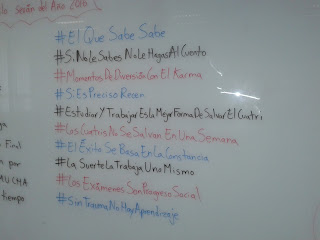 sesión del Año 2010
#El Que Sabe Sabe
#SiNoLeSabes NoLe HagasAlCuento
#Momentos De Diversión Con El Karma
#Si Es Preciso Recen
#Estudiar Y Trabajar Es la Mejor Forma De Salvar El Cuatri
#Los Cuatris No Se Salvan En Una Semana
#El Éxito Se Basa En la Constancia
#La Suerte La Trabaja Uno Mismo
#Los Exámenes Son Progreso Social
#Sin Trauma No Hay Aprendizaje
Final
por
tiempo